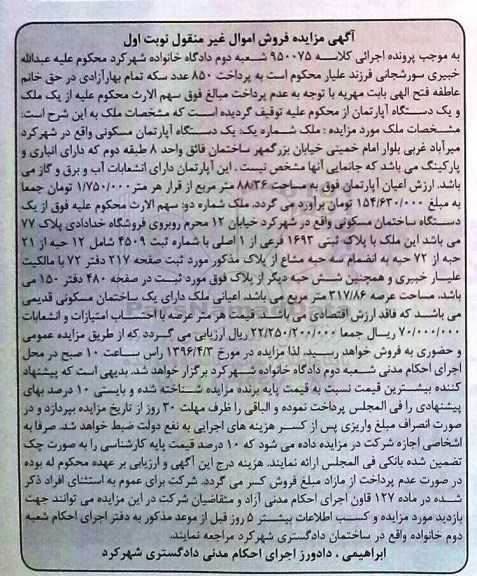 آگهی مزایده فروش اموال غیر منقول نوبت اول
به موجب پرونده اجرائی کلاسه ۹۵۰۰۷۵ شعبه دوم دادگاه خانواده شهرکرد محکوم علیه عبدالله
خبیری سورشجانی فرزند علیار محکوم است به پرداخت ۸۵۰ عدد سکه تمام بهارآزادی در حق خانم
عاطفه فتح الهی بابت مهریه با توجه به عدم پرداخت مبالغ فوق سهم الارث محکوم علیه از یک ملک
و یک دستگاه آپارتمان از محکوم علیه توقیف گردیده است که مشخصات ملک به این شرح است:
مشخصات ملک مورد مزایده : ملک شماره یک: یک دستگاه آپارتمان مسکونی واقع در شهرکرد
میرآباد غربی بلوار امام خمینی خیابان بزرگمهر ساختمان فائق واحد ۸ طبقه دوم که دارای انباری و
پارکینگ می باشد که جانمایی آنها مشخص نیست . این آپارتمان دارای انشعابات آب و برق و گاز می
باشد. ارزش اعیان آپارتمان فوق به مساحت ۸۸/۳۶ متر مربع از قرار هر متر ۱/۷۵۰/۰۰۰ تومان جمعا
به مبلغ ۱۵۴/۶۳۰/۰۰۰ تومان برآورد می گردد. ملک شماره دو: سهم الارث محکوم علیه فوق از یک
دستگاه ساختمان مسکونی واقع در شهرکرد خیابان ۱۲ محرم روبروی فروشگاه خدادادی پلاک ۷۷
می باشد این ملک با پلاک ثبتی ۱۶۹۳ فرعی از ۱ اصلی با شماره ثبت ۴۵۰۹ شامل ۱۲ حبه از ۲۱
حبه از ۷۲ حبه به انضمام سه حبه مشاع از پلاک مذکور مورد ثبت صفحه ۲۱۷ دفتر ۷۲ با مالکیت
علیار خبیری و همچنین شش حبه دیگر از پلاک فوق مورد ثبت در صفحه ۴۸۰ دفتر ۱۵۰ می
باشد. مساحت عرصه ۳۱۷/۸۶ متر مربع می باشد. اعیانی ملک دارای یک ساختمان مسکونی قدیمی
می باشد که فاقد ارزش اقتصادی می باشد. قیمت هر متر عرصه با احتساب امتیازات و انشعابات
۷۰/۰۰۰/۰۰۰ ریال جمعا ۲۲/۲۵۰/۲۰۰/۰۰۰ ریال ارزیابی می گردد که از طریق مزایده عمومی
و حضوری به فروش خواهد رسید. لذا مزایده در مورخ ۱۳۹۶/۴/۳ راس ساعت ۱۰ صبح در محل
اجرای احکام مدنی شعبه دوم دادگاه خانواده شهرکرد برگزار خواهد شد. بدیهی است که پیشنهاد
کننده بیشترین قیمت نسبت به قیمت پایه برنده مزایده شناخته شده و بایستی ۱۰ درصد بهای
پیشنهادی را فی المجلس پرداخت نموده و الباقی را ظرف مهلت ۳۰ روز از تاریخ مزایده بپردازد و در
صورت انصراف مبلغ واریزی پس از کسر هزینه های اجرایی به نفع دولت ضبط خواهد شد. صرفا به
اشخاصی اجازه شرکت در مزایده داده می شود که ۱۰ درصد قیمت پایه کارشناسی را به صورت چک
تضمین شده بانکی فی المجلس ارائه نمایند. هزینه درج این آگهی و ارزیابی بر عهده محکوم له بوده
در صورت عدم پرداخت از مازاد مبلغ فروش کسر می گردد. شرکت برای عموم به استثنای افراد ذکر
شده در ماده ۱۲۷ قانون اجرای احکام مدنی آزاد و متقاضیان شرکت در این مزایده می توانند جهت
بازدید مورد مزایده و کسب اطلاعات بیشتر ۵ روز قبل از موعد مذکور به دفتر اجرای احکام شعبه
دوم خانواده واقع در ساختمان دادگستری شهرکرد مراجعه نمایند.
ابراهیمی . دادورز اجرای احکام مدنی دادگستری شهرکرد